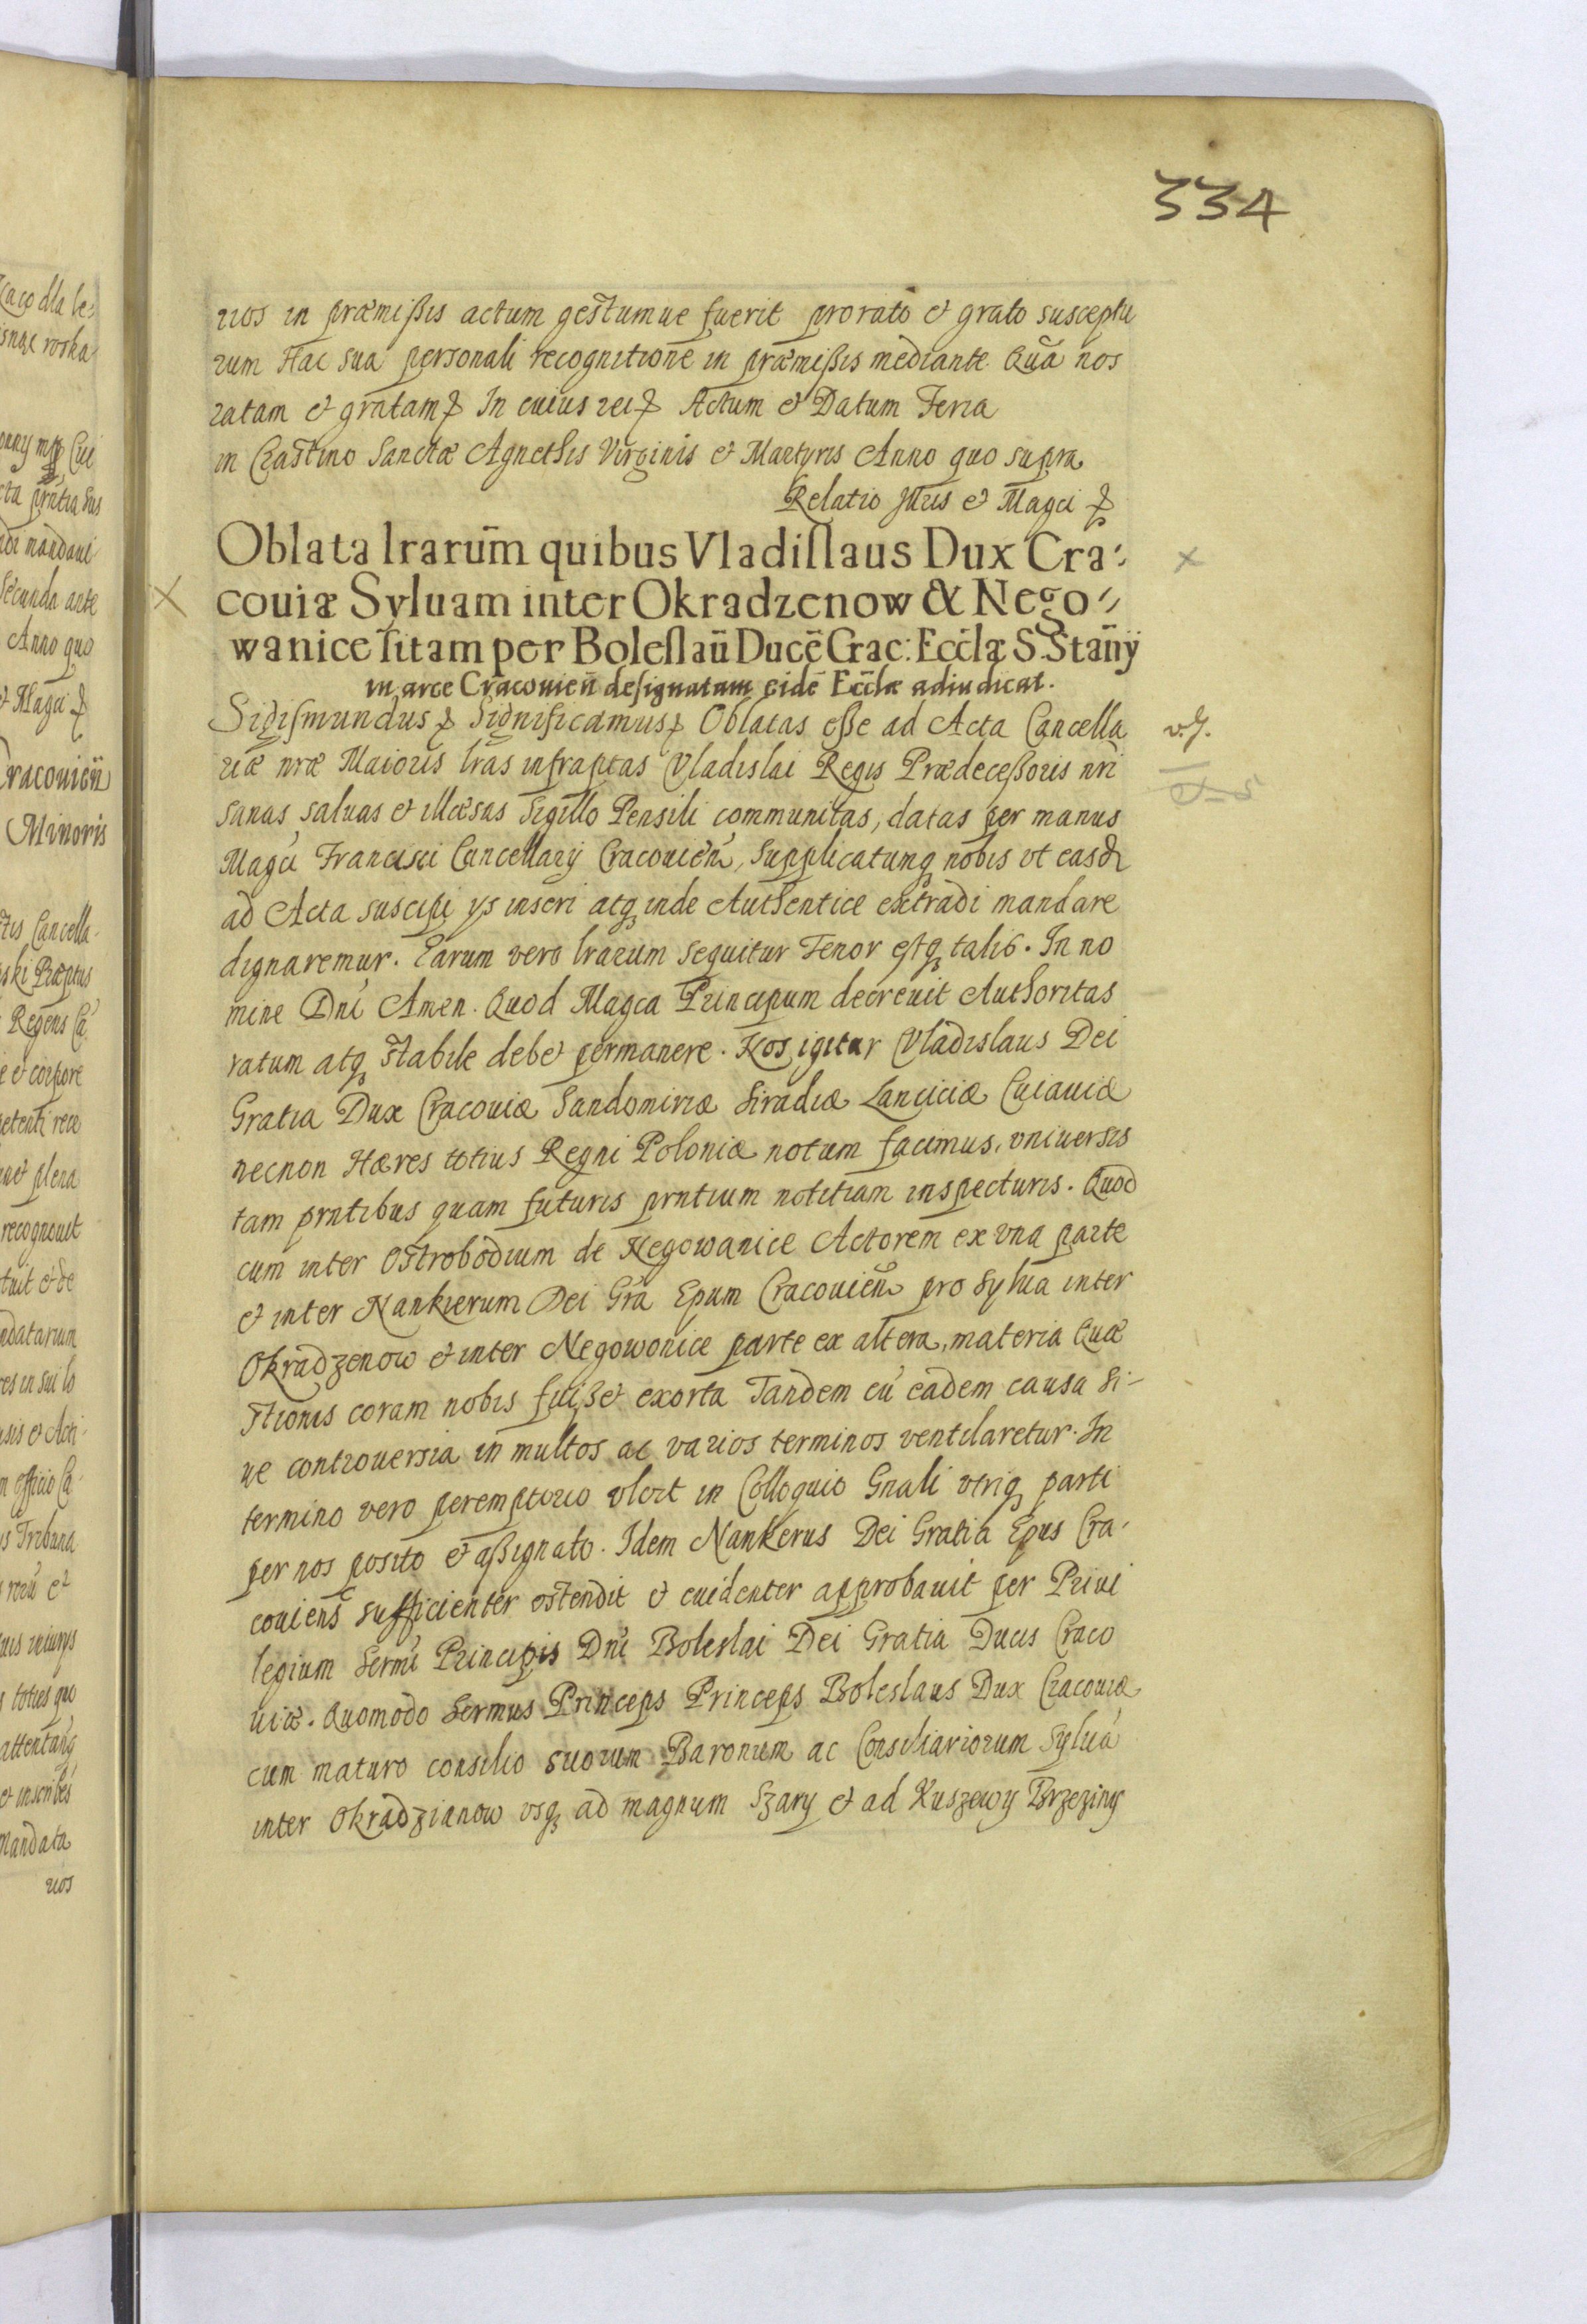 334
rios in præmißis actum gestumue fuerit pro rato et grato susceptu
rum Hac sua personali recognitione in præmißis mediante. Quã nos
ratam et gratam In cuius rei Actum et Datum Feria
in Crastino Sanctæ Agnethis Virginis et Martyris Anno quo supra
Relatio Illris et Magci
Oblata lrarum̃ quibus Vladislaus Dux Cra-
couiæ Syluam inter Okradzenow & Nego-
wanice sitam per Boleslaũ Ducẽ Crac: Eccl̃æ S. Stañij
in arce Cracouieñ designatam eidẽ Eccl̃æ adiudicat.
Sigismundus Significamus Oblatas eße ad Acta Cancella
riæ nr̃æ Maioris lr̃as infrapt̃as Vladislai Regis Prædeceßoris nr̃i
sanas saluas et illæsas Sigillo Pensili communitas, datas per manus
Magci Francisci Cancellarij Cracouieñ, Supplicatumq nobis vt easd
ad Acta suscipi ys inseri atq inde Authentice extradi mandare
dignaremur. Earum vero lrarum sequitur Tenor estq talis. In no
mine Dni Amen. Quod Magca Principum decreuit Authoritas
ratum atq stabile debet permanere. Nos igitur Vladislaus Dei
Gratia Dux Cracouiæ Sandomiriæ Siradiæ Lanciciæ Cuiauiæ
necnon Hæres totius Regni Poloniæ notum facimus, vniuersis
tam prntibus quam futuris prntium notitiam inspecturis. Quod
cum inter Ostrobodium de Negowanice Actorem ex vna parte
et inter Nankierum Dei Gra Epum Cracouieñ pro Sylua inter
Okradzenow et inter Negowonice parte ex altera, materia Quæ
stionis coram nobis fuißet exorta Tandem cũ eadem causa Si-
ue controuersia in multos ac varios terminos ventilaretur. In
termino vero peremptorio vlort in Colloquio Gnali vtriq parti
per nos posito et aßignato. Idem Nankerus Dei Gratia Epus Cra-
couiens sufficienter ostendit et euidenter approbauit per Priui
legium Sermi Principis Dni Boleslai Dei Gratia Ducis Craco
uiæ. Quomodo Sermus Princeps Princeps Boleslaus Dux Cracouiæ
cum maturo consilio suorum Baronum ac Consiliariorum Syluã
inter Okradzianow vsq ad magnum Szary et ad Kuszewy Brzeziny